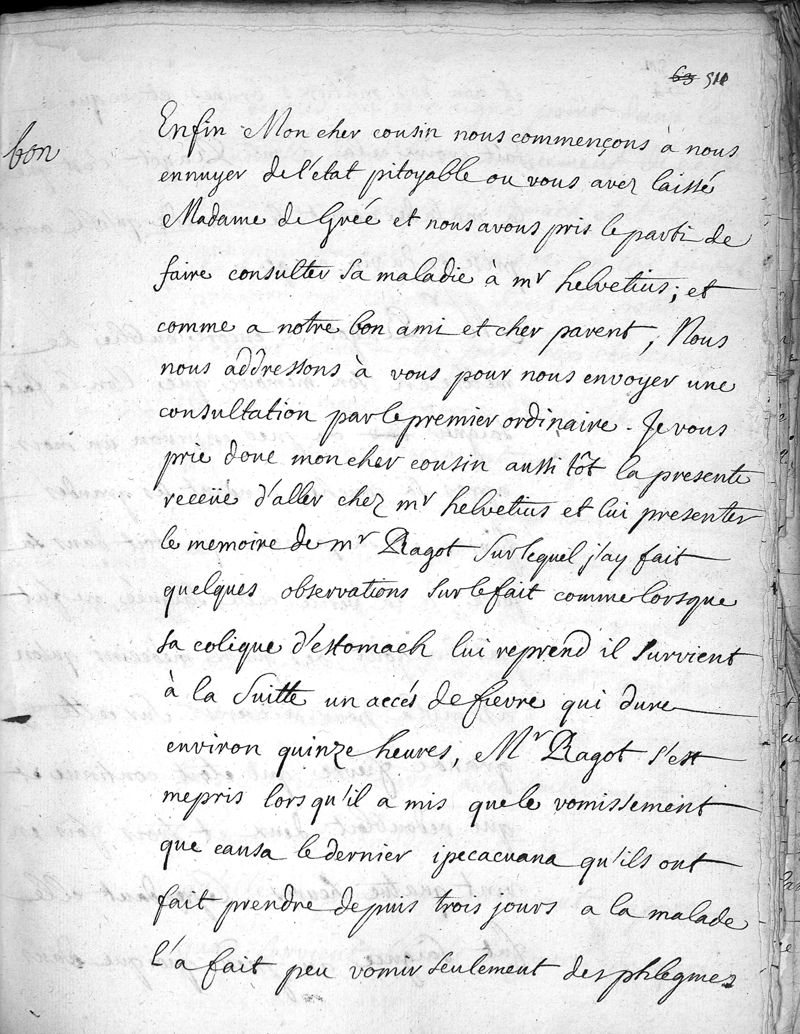 63 511
bon
Enfin Mon cher cousin nous commençons à nous
ennuyer de l'état pitoyable ou vous avez laissé
Madame de Gréé et nous avous pris le parti de
faire consulter sa maladie à mr helvetius; et
comme a notre bon ami et cher parent, Nous
nous addressons à vous pour nous envoyer une
consultation par le premier ordinaire. Je vous
prie donc mon cher cousin aussi tôt la presente
receüe d'aller chez mr helvetius et lui presenter
le memoire de mr Ragot sur lequel j'ay fait
quelques observations sur le fait comme lorsque
sa colique d'estomach lui reprend il survient
à la suitte un accés de fievre qui dure
environ quinze heures, Mr Ragot s'est
mepris lorsqu'il a mis que le vomissement
que causa le dernier ipecacuana qu'ils ont
fait prendre depuis trois jours a la malade
l'a fait peu vomir seulement des phlegmes